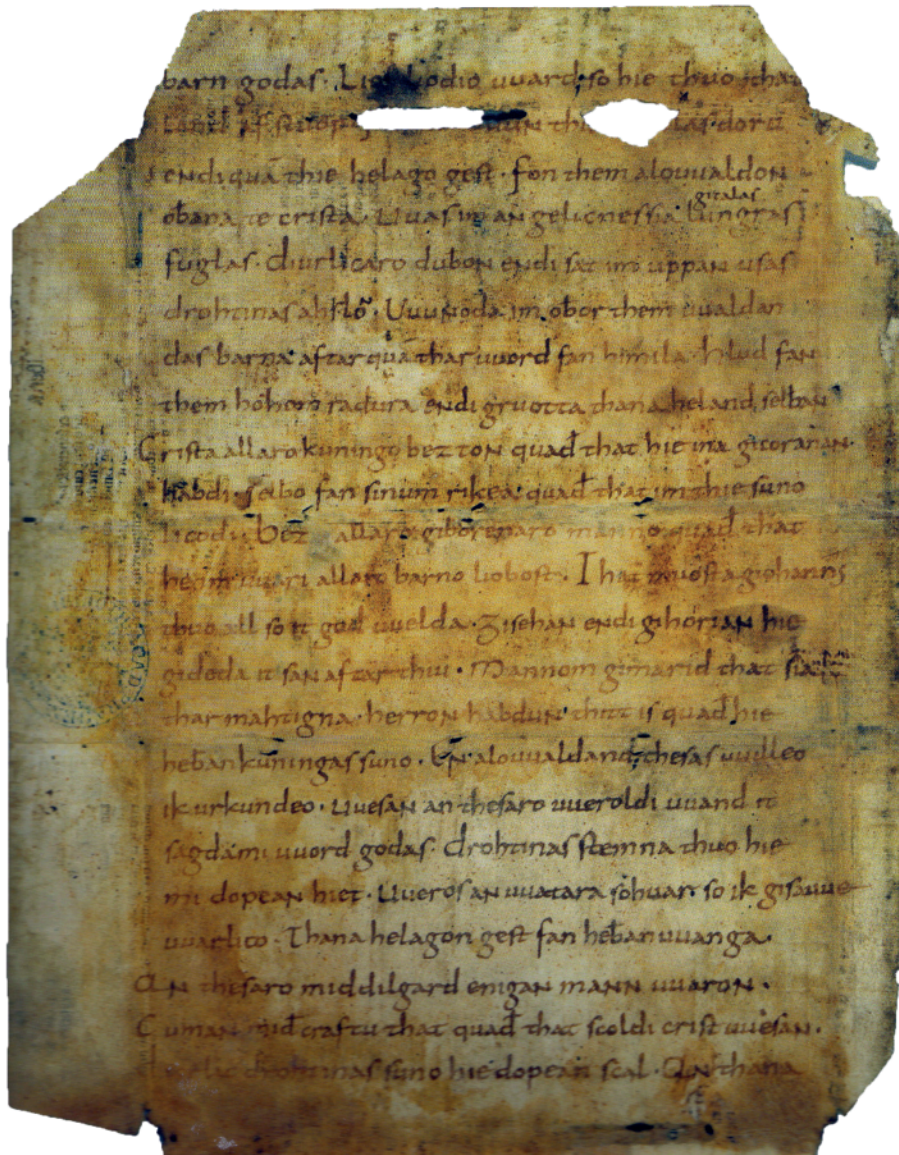 barn godas. Lio liodio uuard; so hie thuo that
land af stuop thi doru
endi quā thie helago gest. fon them alouualdon
oƀana te crista. Uuas im an gelicnessia lungras gitalas
fuglas. diurlicaro duƀon endi sat im uppan usas
drohtinas ahslo. Uuunoda im oƀor them uualdan
das barna. aftar quā thar uuord fan himila. hlud fan
them hohom radura endi gruotta thana heland selƀan
Crista allaro kuningo bezton quađ that hie ina gicoranan
habdi. selbo fan sinum rikea. quađ that im thie suno
licodi. bez allaro giborenaro manno quađ that
he im uuari allaro barno lioƀost. That muosta giohannis
thuo all so it god uuelda. Gisehan endi gihorian hie
gideda it san aftar thiu. Mannom gimarid that sia
thar mahtigna. herron habdun. thitt is quađ hie
heƀankuningas suno. En alouualdand, thesas uuilleo
ik urkundeo. Uuesan an thesaro uueroldi uuand it
sagda mi uuord godas. drohtinas stemna thuo hie
mi dopean hiet. Uueros an uuatara sohuar. so ik gisauue
uuarlico. Thana helagon gest fan heƀanuuanga.
An thesaro middilgard enigan mann uuaron.
Cuman miđ craftu that quađ that scoldi crist uuesan.
diurlic drohtinas suno hie dopean scal. An thana